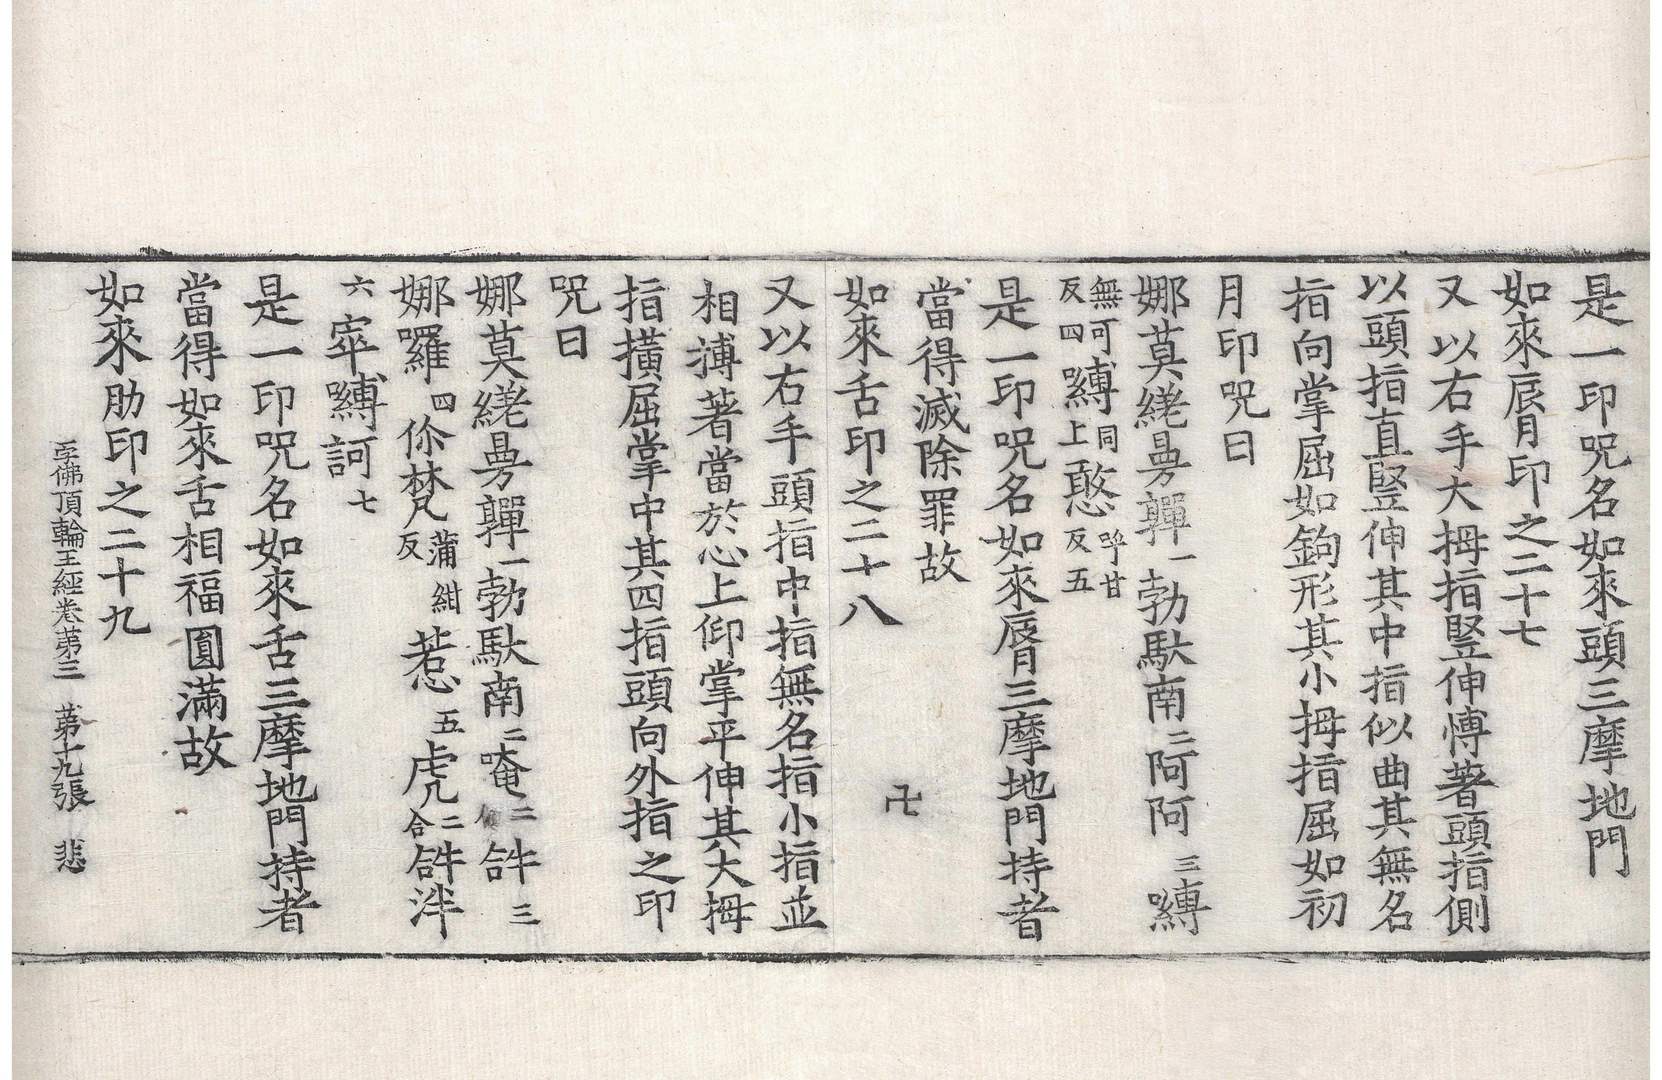 是一印呪名如來頭三摩地門
如來脣印之二十七
又以右手大拇指豎伸愽著頭指側
以頭指直豎伸其中指似曲其無名
指向掌屈如鉤形其小拇指屈如初
月印呪曰
娜莫繞曼彈一勃馱南二阿阿三嚩
無可反四嚩同上憨呼甘反五
是一印呪名如來脣三摩地門持者
當得滅除罪故
如來舌印之二十八 卍
又以右手頭指中指無名指小指並
相搏著當於心上仰掌平伸其大拇
指橫屈掌中其四指頭向外指之印
呪曰
娜莫繞曼彈一勃馱南二唵二合三
娜囉四你梵蒲紺反惹五虎二合𤙖泮
六窣嚩訶七
是一印呪名如來舌三摩地門持者
當得如來舌相福圓滿故
如來肋印之二十九
佛頂輪王經卷第三 第十九張 悲